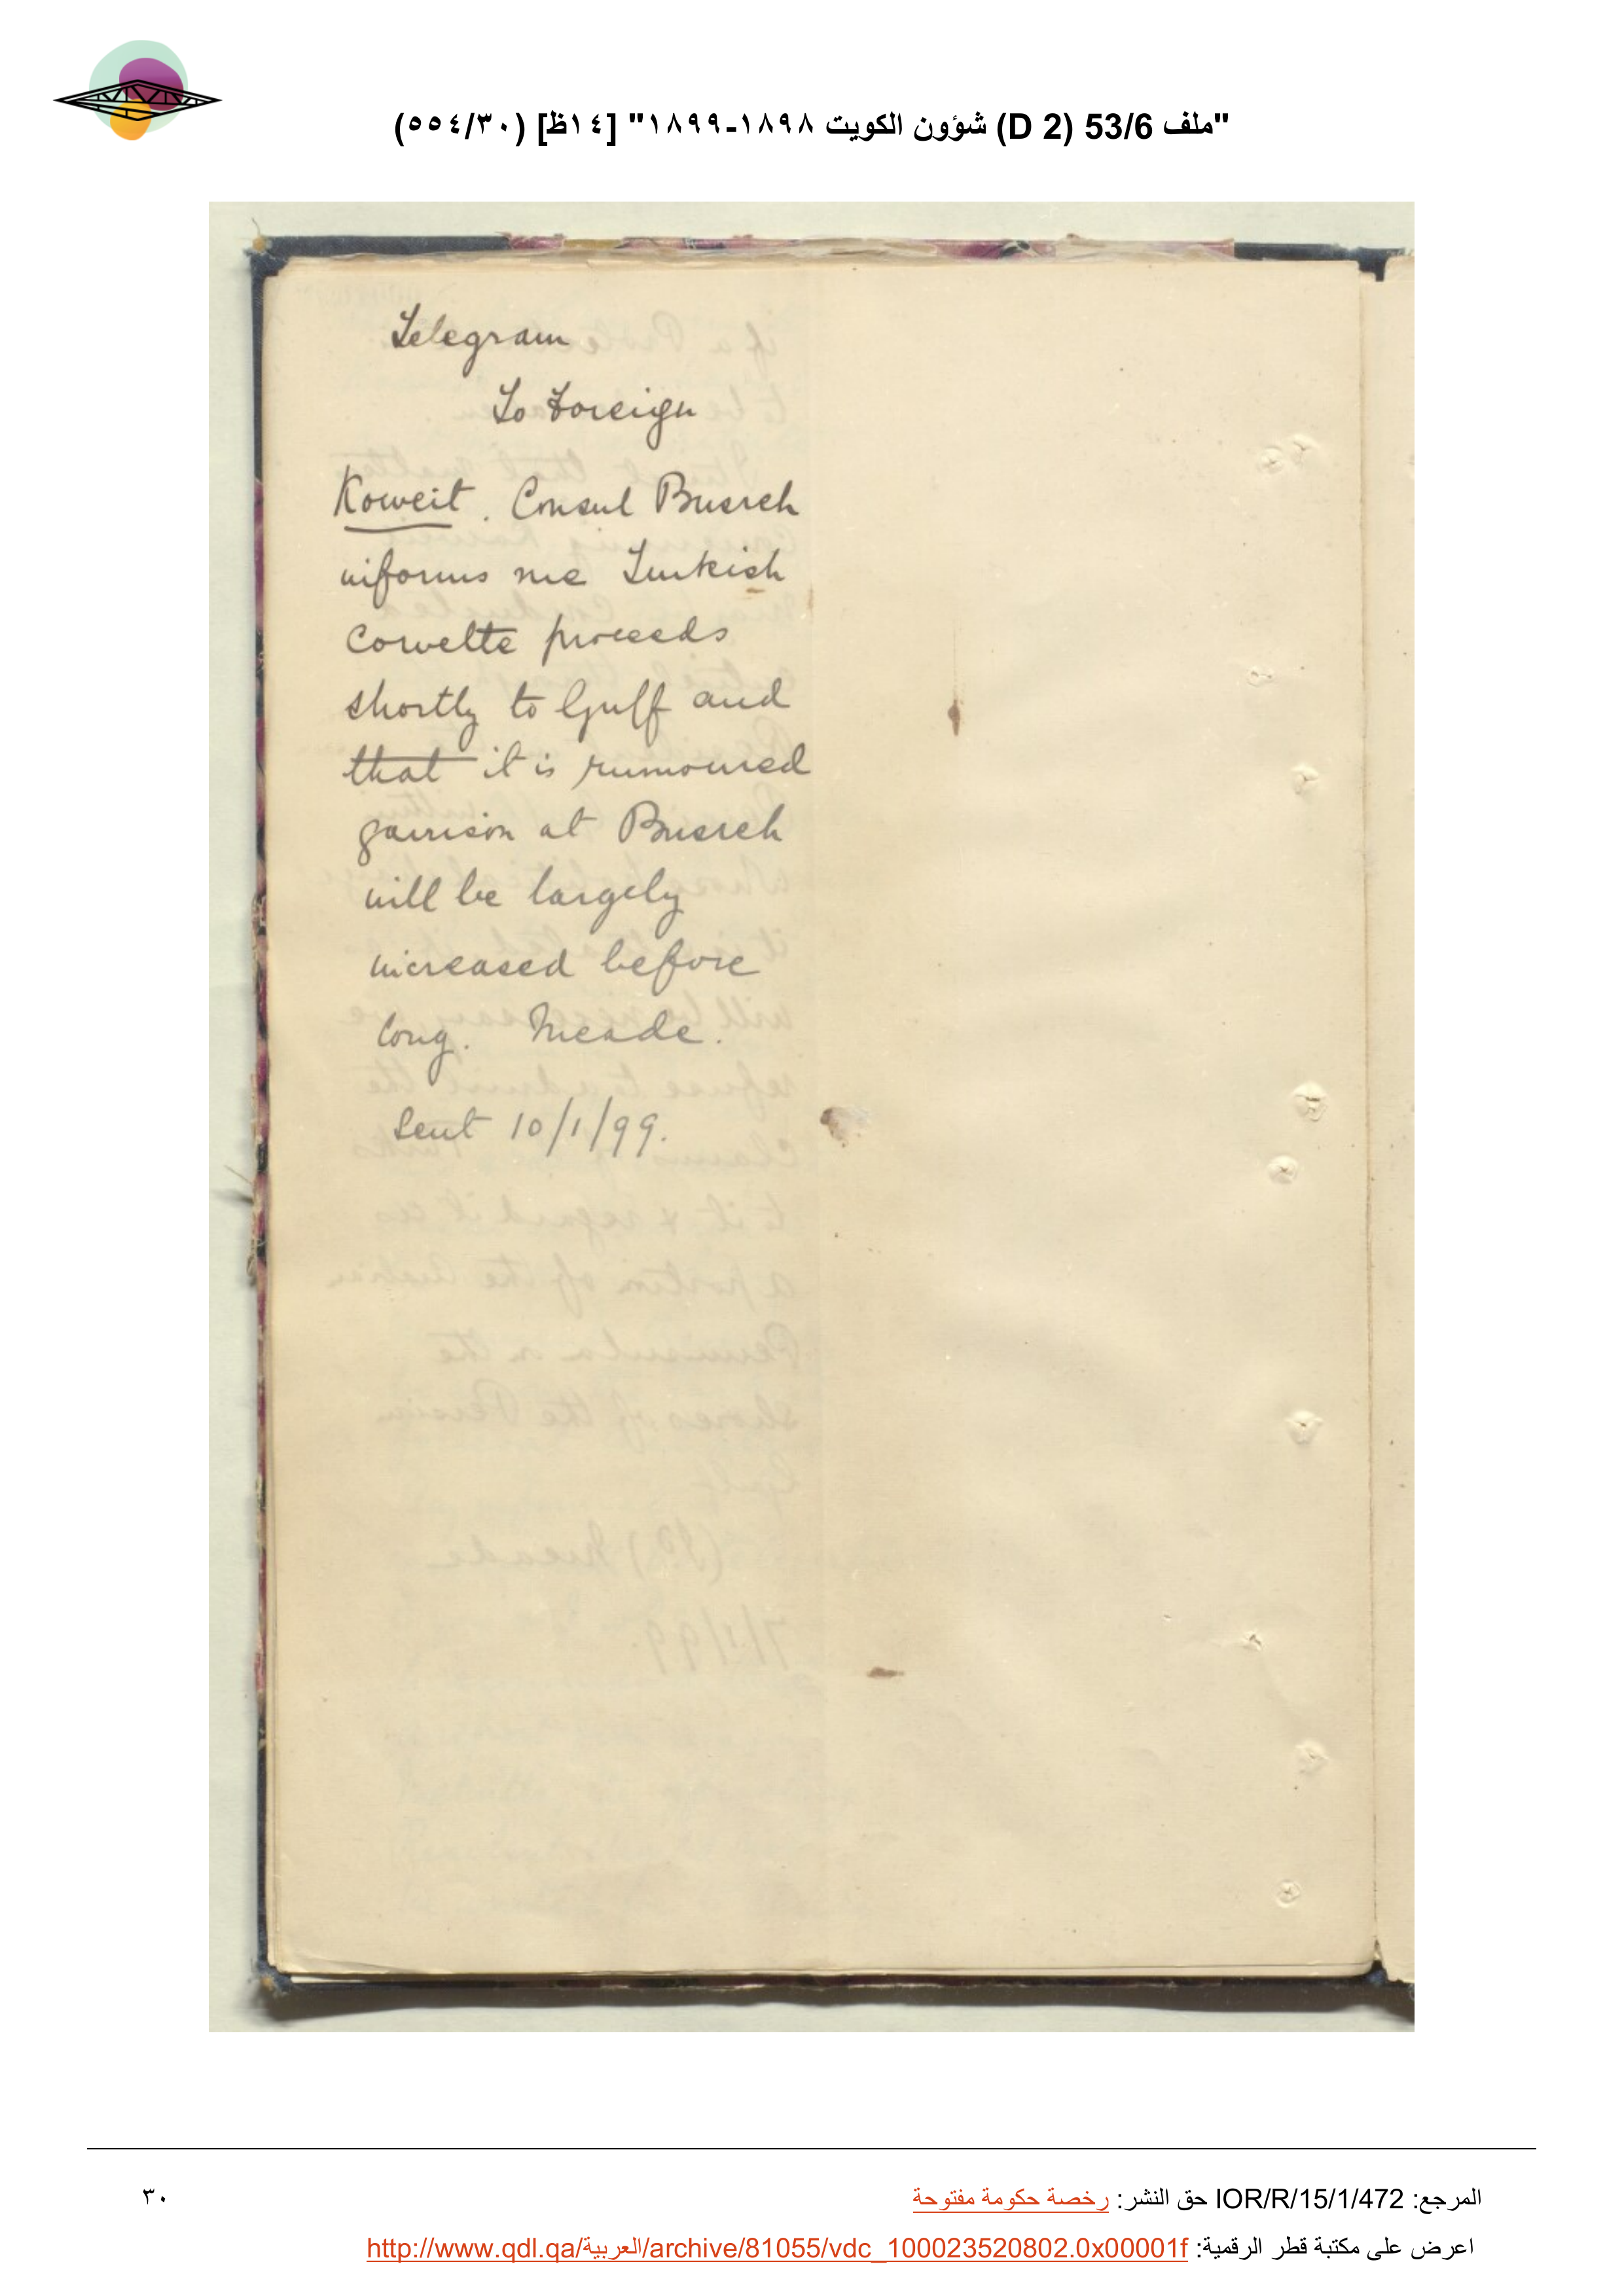 "ملف 53/6 (D 2) شؤون الكويت ١٨٩٨-١٨٩٩" [١٤ظ] (٥٥٤/٣٠)
Telegram
To Foreign
Koweit. Consul Busreh
informs me Turkish
Corvette proceeds
shortly to Gulf and
that it is rumoured
garrison at Busreh
will be largely
increased before
long. Meade.
Sent 10/1/99.
المرجع: IOR/R/15/1/472 حق النشر: رخصة حكومة مفتوحة
٣٠
اعرض على مكتبة قطر الرقمية: http://www.qdl.qa/العربية/archive/81055/vdc_100023520802.0x00001f